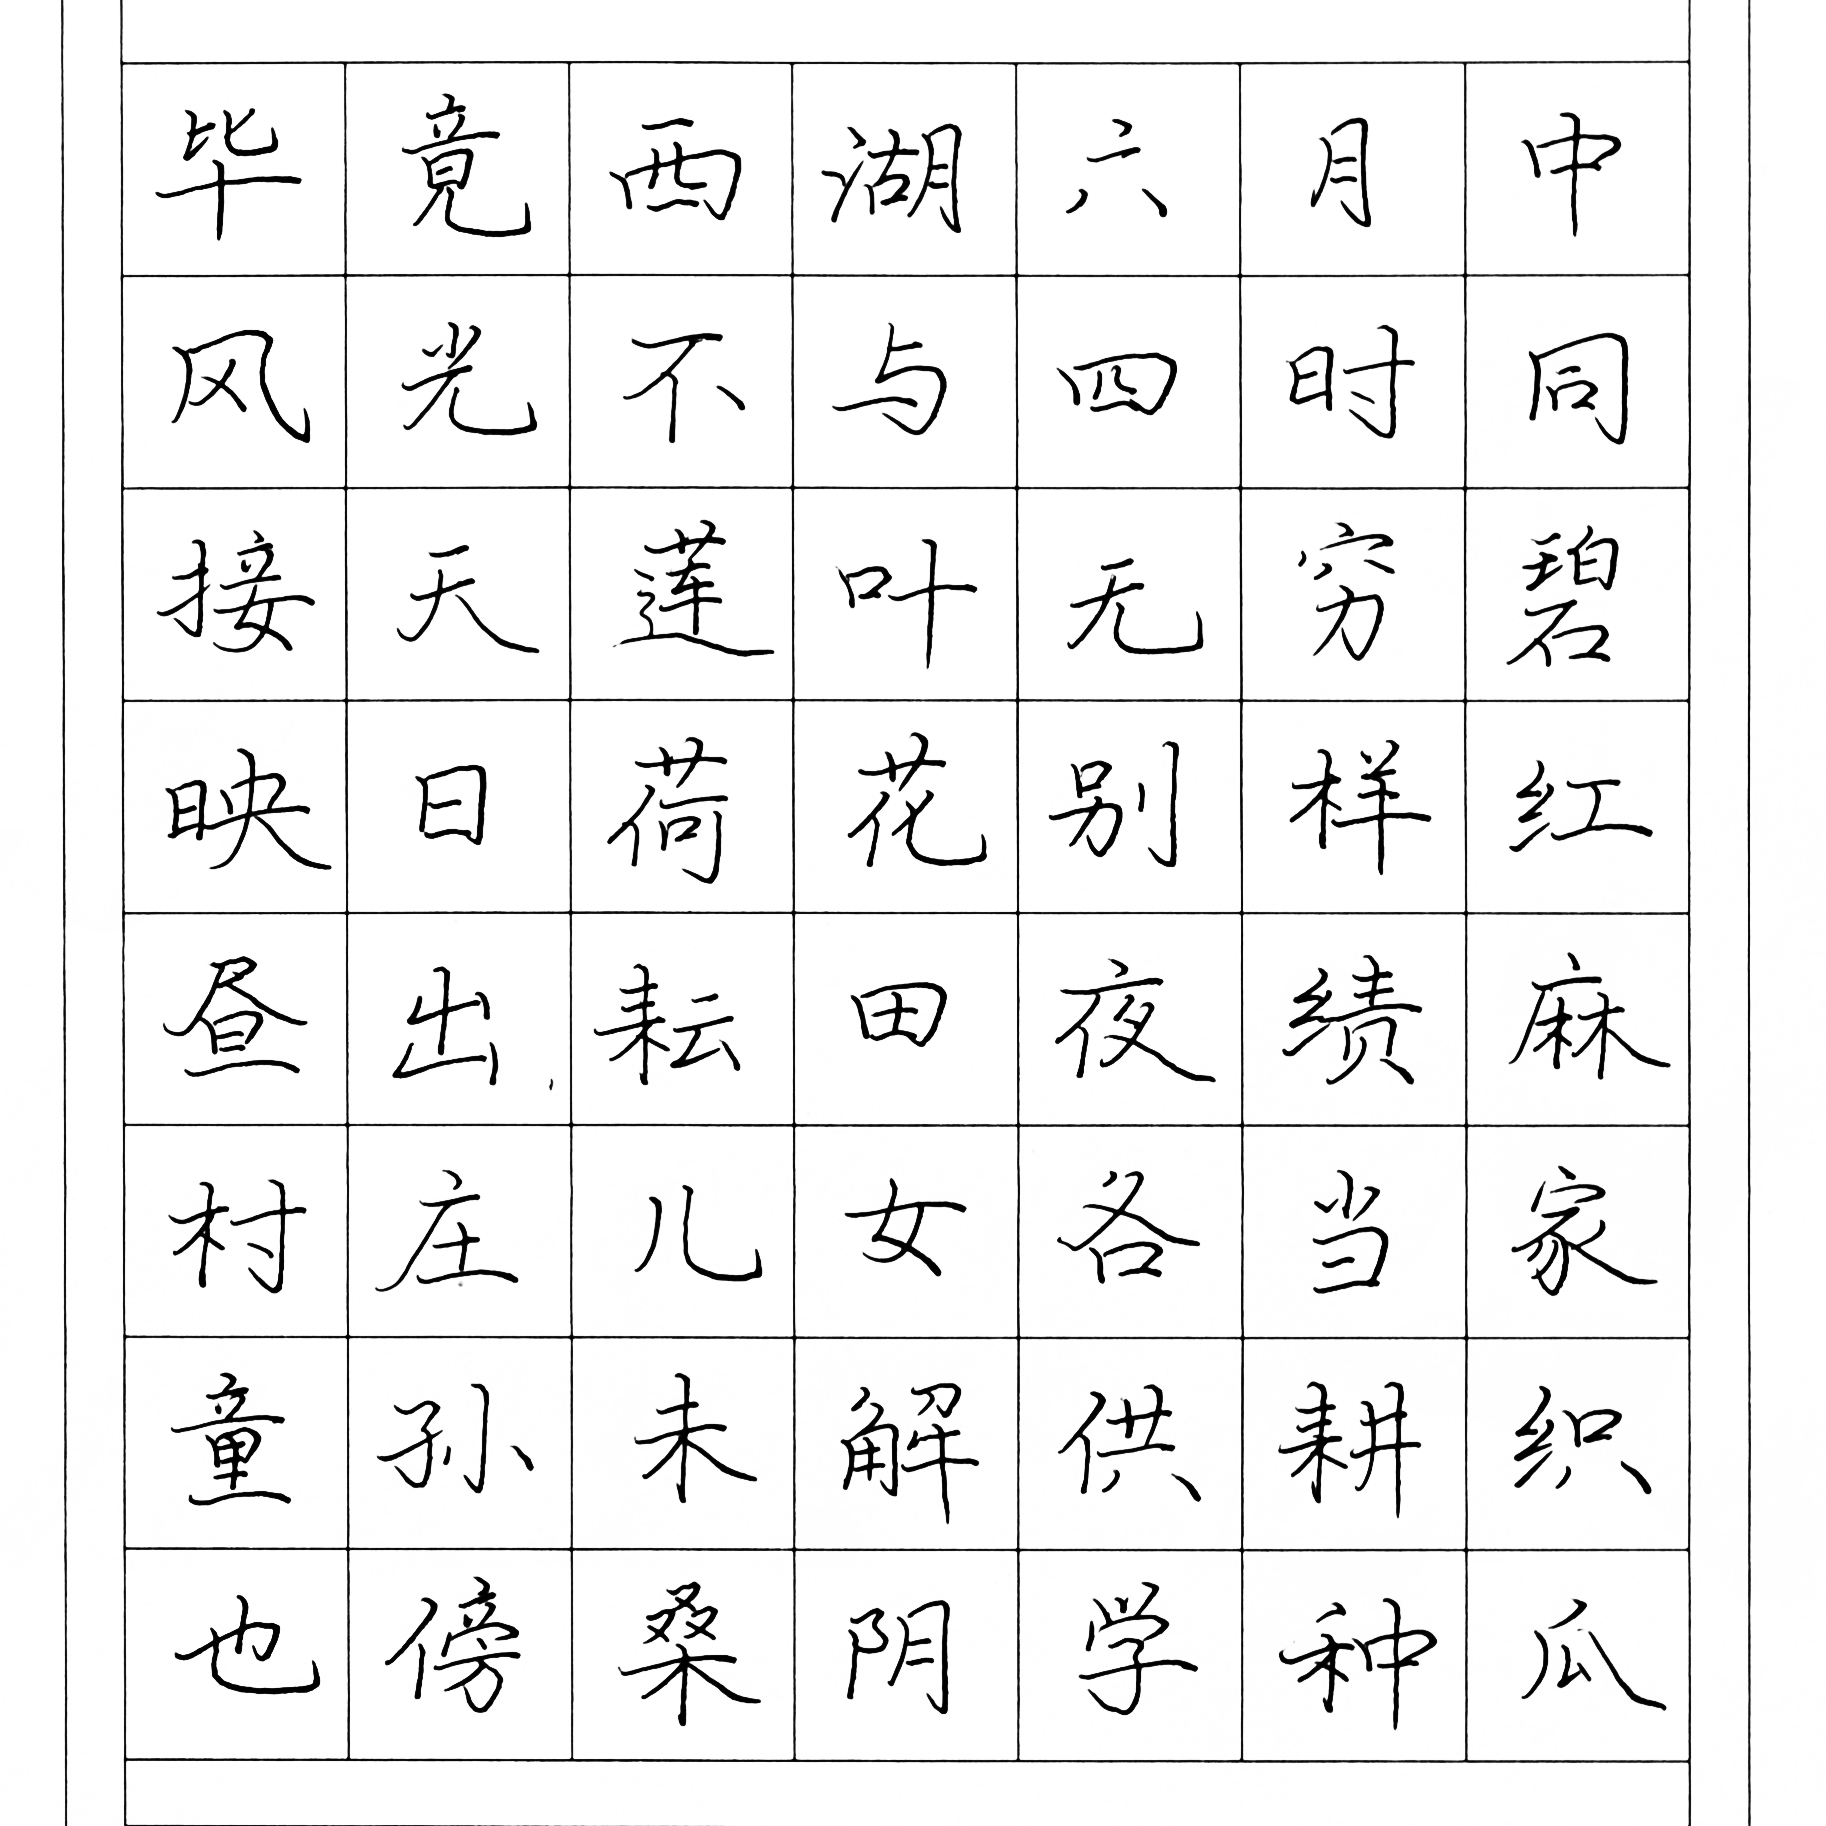 毕竟西湖六月中
风光不与四时同
接天莲叶无穷碧
映日荷花别样红
昼出耘田夜绩麻
村庄儿女各当家
童孙未解供耕织
也傍桑阴学种瓜